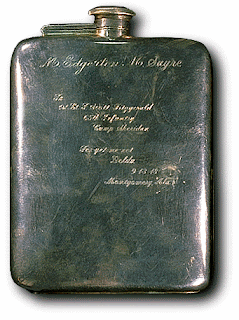 To
1st Lt. F. Scott Fitzgerald
65th Infantry
Camp Sheridan
Forget-me-not
Zelda
9-13-18
Montgomery, Ala.